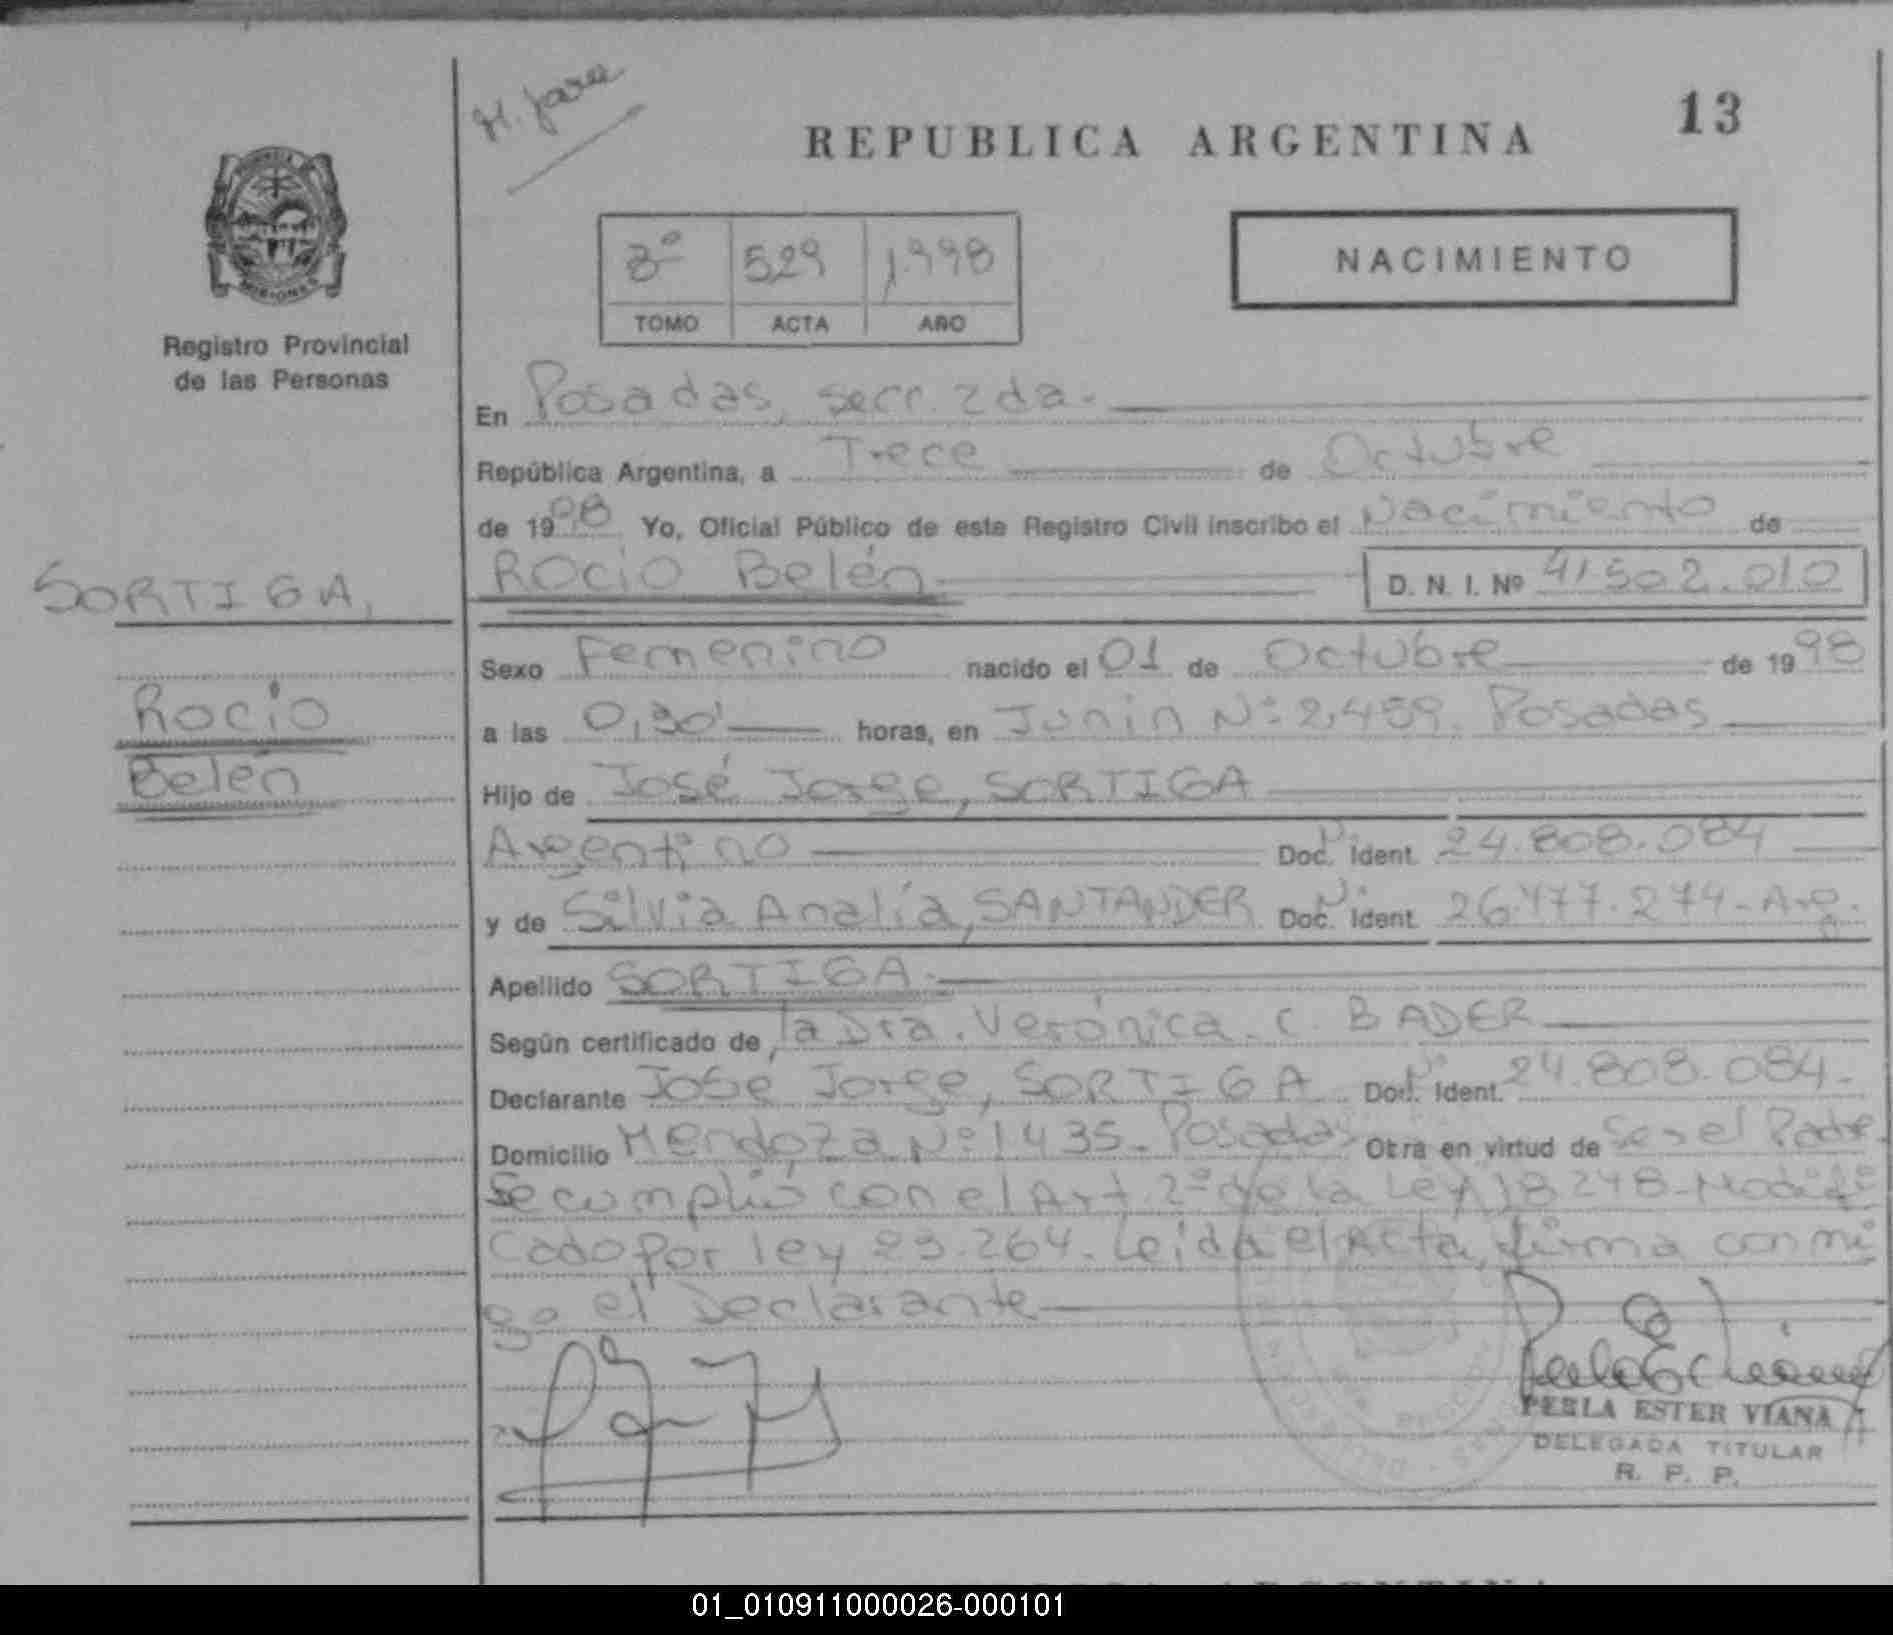 H. Jara
13
REPUBLICA ARGENTINA
3º 529 1998
TOMO ACTA AÑO
NACIMIENTO
MISIONES
Registro Provincial
de las Personas
SORTIGA,
Rocio
Belén
En Posadas, secc. 2da.
República Argentina, a Trece de Octubre
de 1998 Yo, Oficial Público de este Registro Civil inscribo el Nacimiento de
Rocio Belén D. N. I. Nº 41502.010
Sexo Femenino nacido el 01 de Octubre de 1998
a las 0,30' horas, en Junin Nº 2.459. Posadas
Hijo de José Jorge, SORTIGA
Argentino Doc. Ident. 24.808.084
y de Silvia Analía, SANTANDER Doc. Ident. 26.477.274-Arg.
Apellido SORTIGA.
Según certificado de, la Dra. Verónica. C. BADER
Declarante José Jorge, SORTIGA Doc. Ident. 24.808.084.
Domicilio Mendoza Nº 1435. Posadas Obra en virtud de Ser el Padre.
Se cumplió con el Art. 2º de la Ley 18248-Modifi
cado por ley 23.264. Leída el Acta, firma conmi
go el Declarante
PERLA ESTER VIANA
DELEGADA TITULAR
R. P. P.
01_010911000026-000101